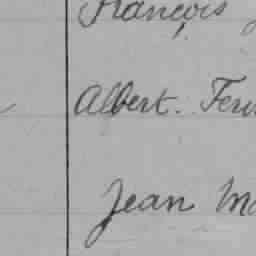 François
Albert. Fer
Jean Ma